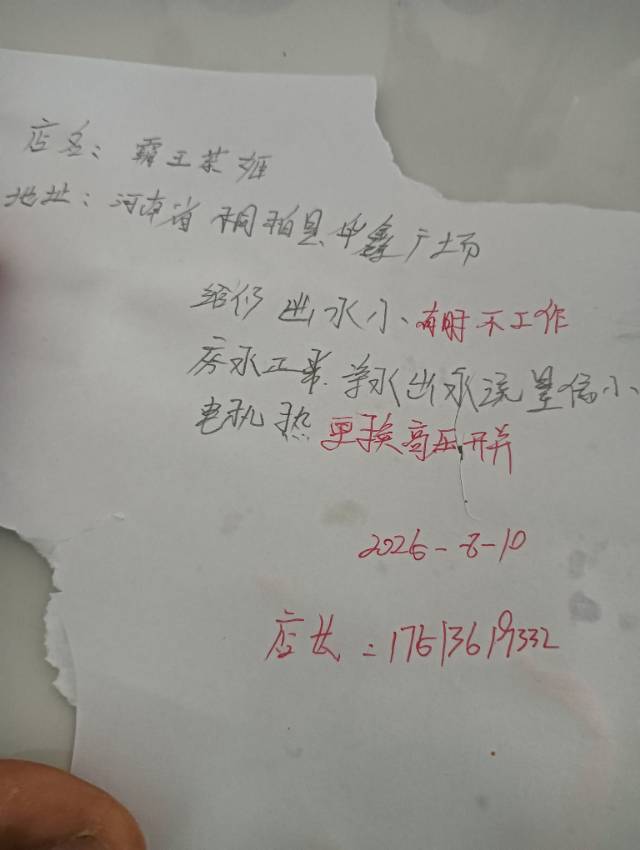 店名：霸王茶姬
地址：河南省桐柏县华鑫广场
给修 出水小、有时不工作
废水正常.净水出水流量偏小、
电机热 更换高压开关
2025-8-10
店长：17513619332